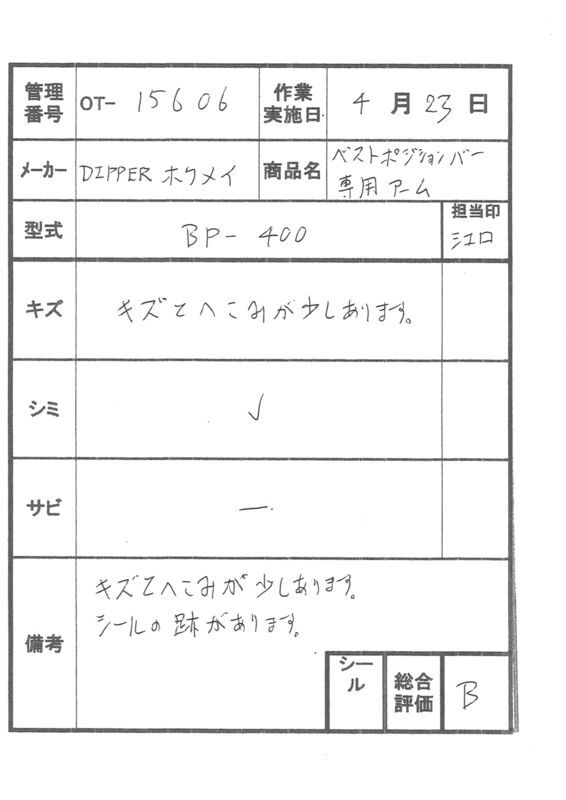 管理番号 OT- 15606 作業実施日 4月23日
メーカー DIPPER ホクメイ 商品名 ベストポジションバー
専用アーム
型式 BP-400 担当印
江口
キズ キズとへこみが少しあります。
シミ ✓
サビ —
備考 キズとへこみが少しあります。
シールの跡があります。
シール 総合評価 B